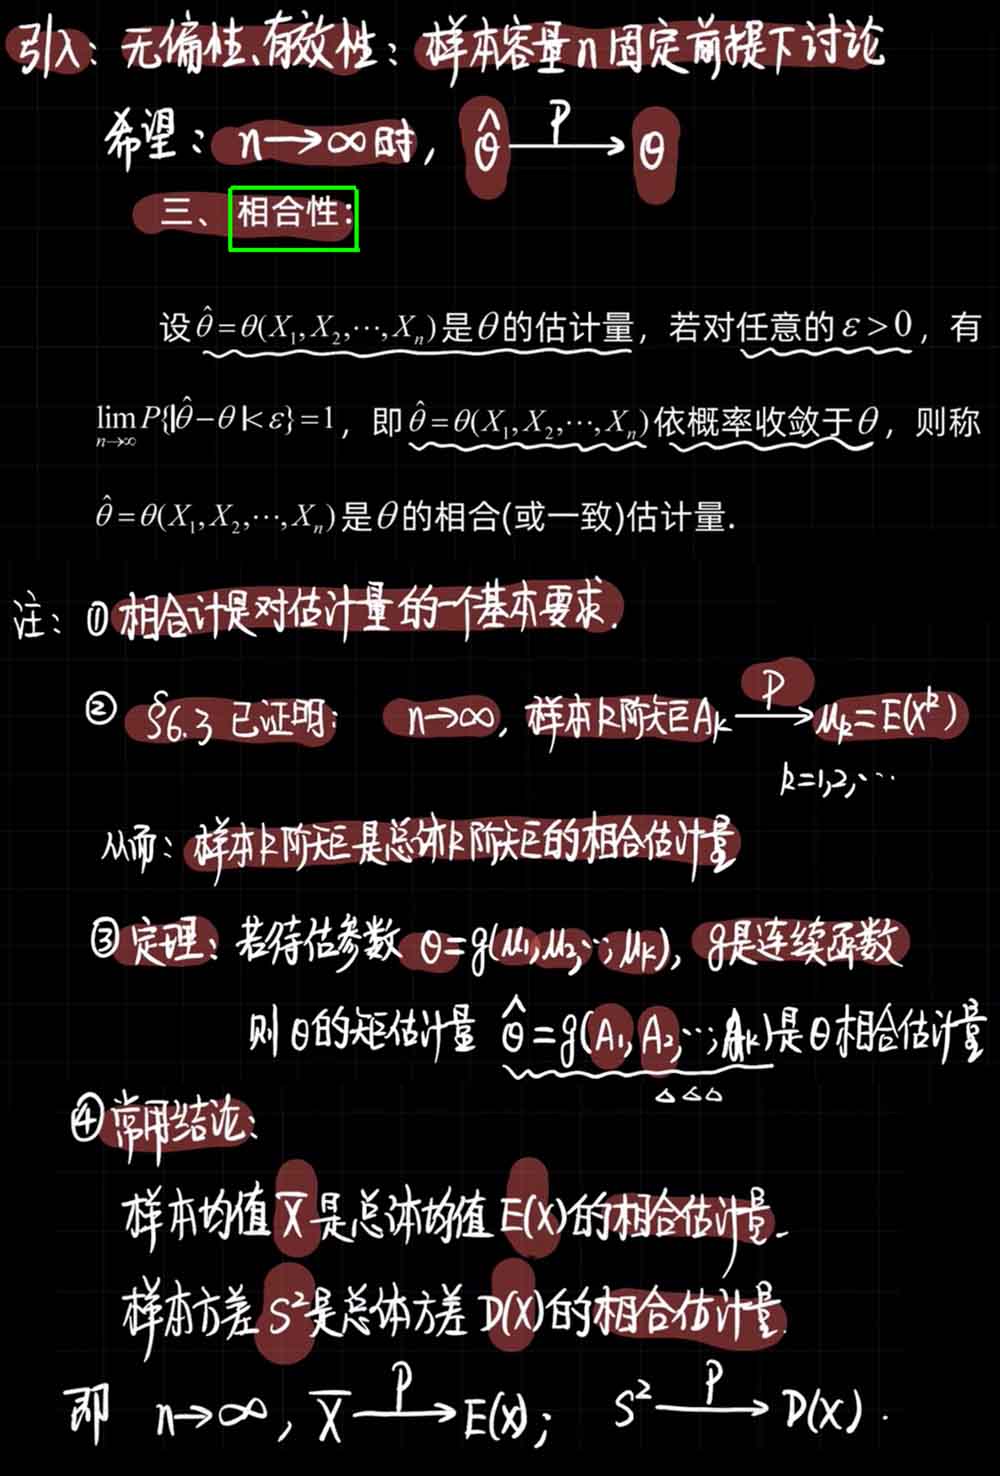 引入：无偏性、有效性：样本容量n固定前提下讨论
希望：n→∞时，θ̂ —P→ θ
三、相合性：
设θ̂=θ(X₁,X₂,⋯,Xₙ)是θ的估计量，若对任意的ε>0，有
lim n→∞ P{|θ̂-θ|<ε}=1，即θ̂=θ(X₁,X₂,⋯,Xₙ)依概率收敛于θ，则称
θ̂=θ(X₁,X₂,⋯,Xₙ)是θ的相合(或一致)估计量.
注：①相合计是对估计量的一个基本要求.
② §6.3 已证明：n→∞，样本k阶矩Aₖ —P→ μₖ=E(Xᵏ)
k=1,2,⋯
从而：样本k阶矩是总体k阶矩的相合估计量
③定理：若待估参数 θ=g(μ₁,μ₂,⋯,μₖ)，g是连续函数
则θ的矩估计量 θ̂=g(A₁,A₂,⋯,Aₖ)是θ相合估计量
④常用结论：
样本均值X̄是总体均值E(X)的相合估计量.
样本方差S²是总体方差D(X)的相合估计量.
即 n→∞，X̄ —P→ E(X)；S² —P→ D(X).